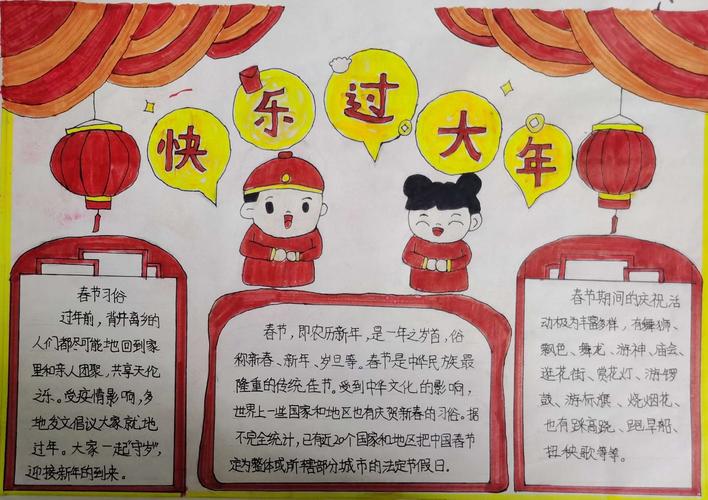 快乐过大年
春节习俗
过年前，背井离乡的
人们都尽可能地回到家
里和亲人团聚，共享天伦
之乐。受疫情影响，多
地发文倡议大家就地
过年。大家一起“守岁”，
迎接新年的到来。
春节，即农历新年，是一年之岁首，俗
称新春、新年、岁旦等。春节是中华民族最
隆重的传统佳节。受到中华文化的影响，
世界上一些国家和地区也有庆贺新春的习俗。据
不完全统计，已有近20个国家和地区把中国春节
定为整体或所辖部分城市的法定节假日。
春节期间的庆祝活
动极为丰富多样，有舞狮、
飘色、舞龙、游神、庙会、
逛花街、赏花灯、游锣
鼓、游标旗、烧烟花、
也有踩高跷、跑旱船、
扭秧歌等等。